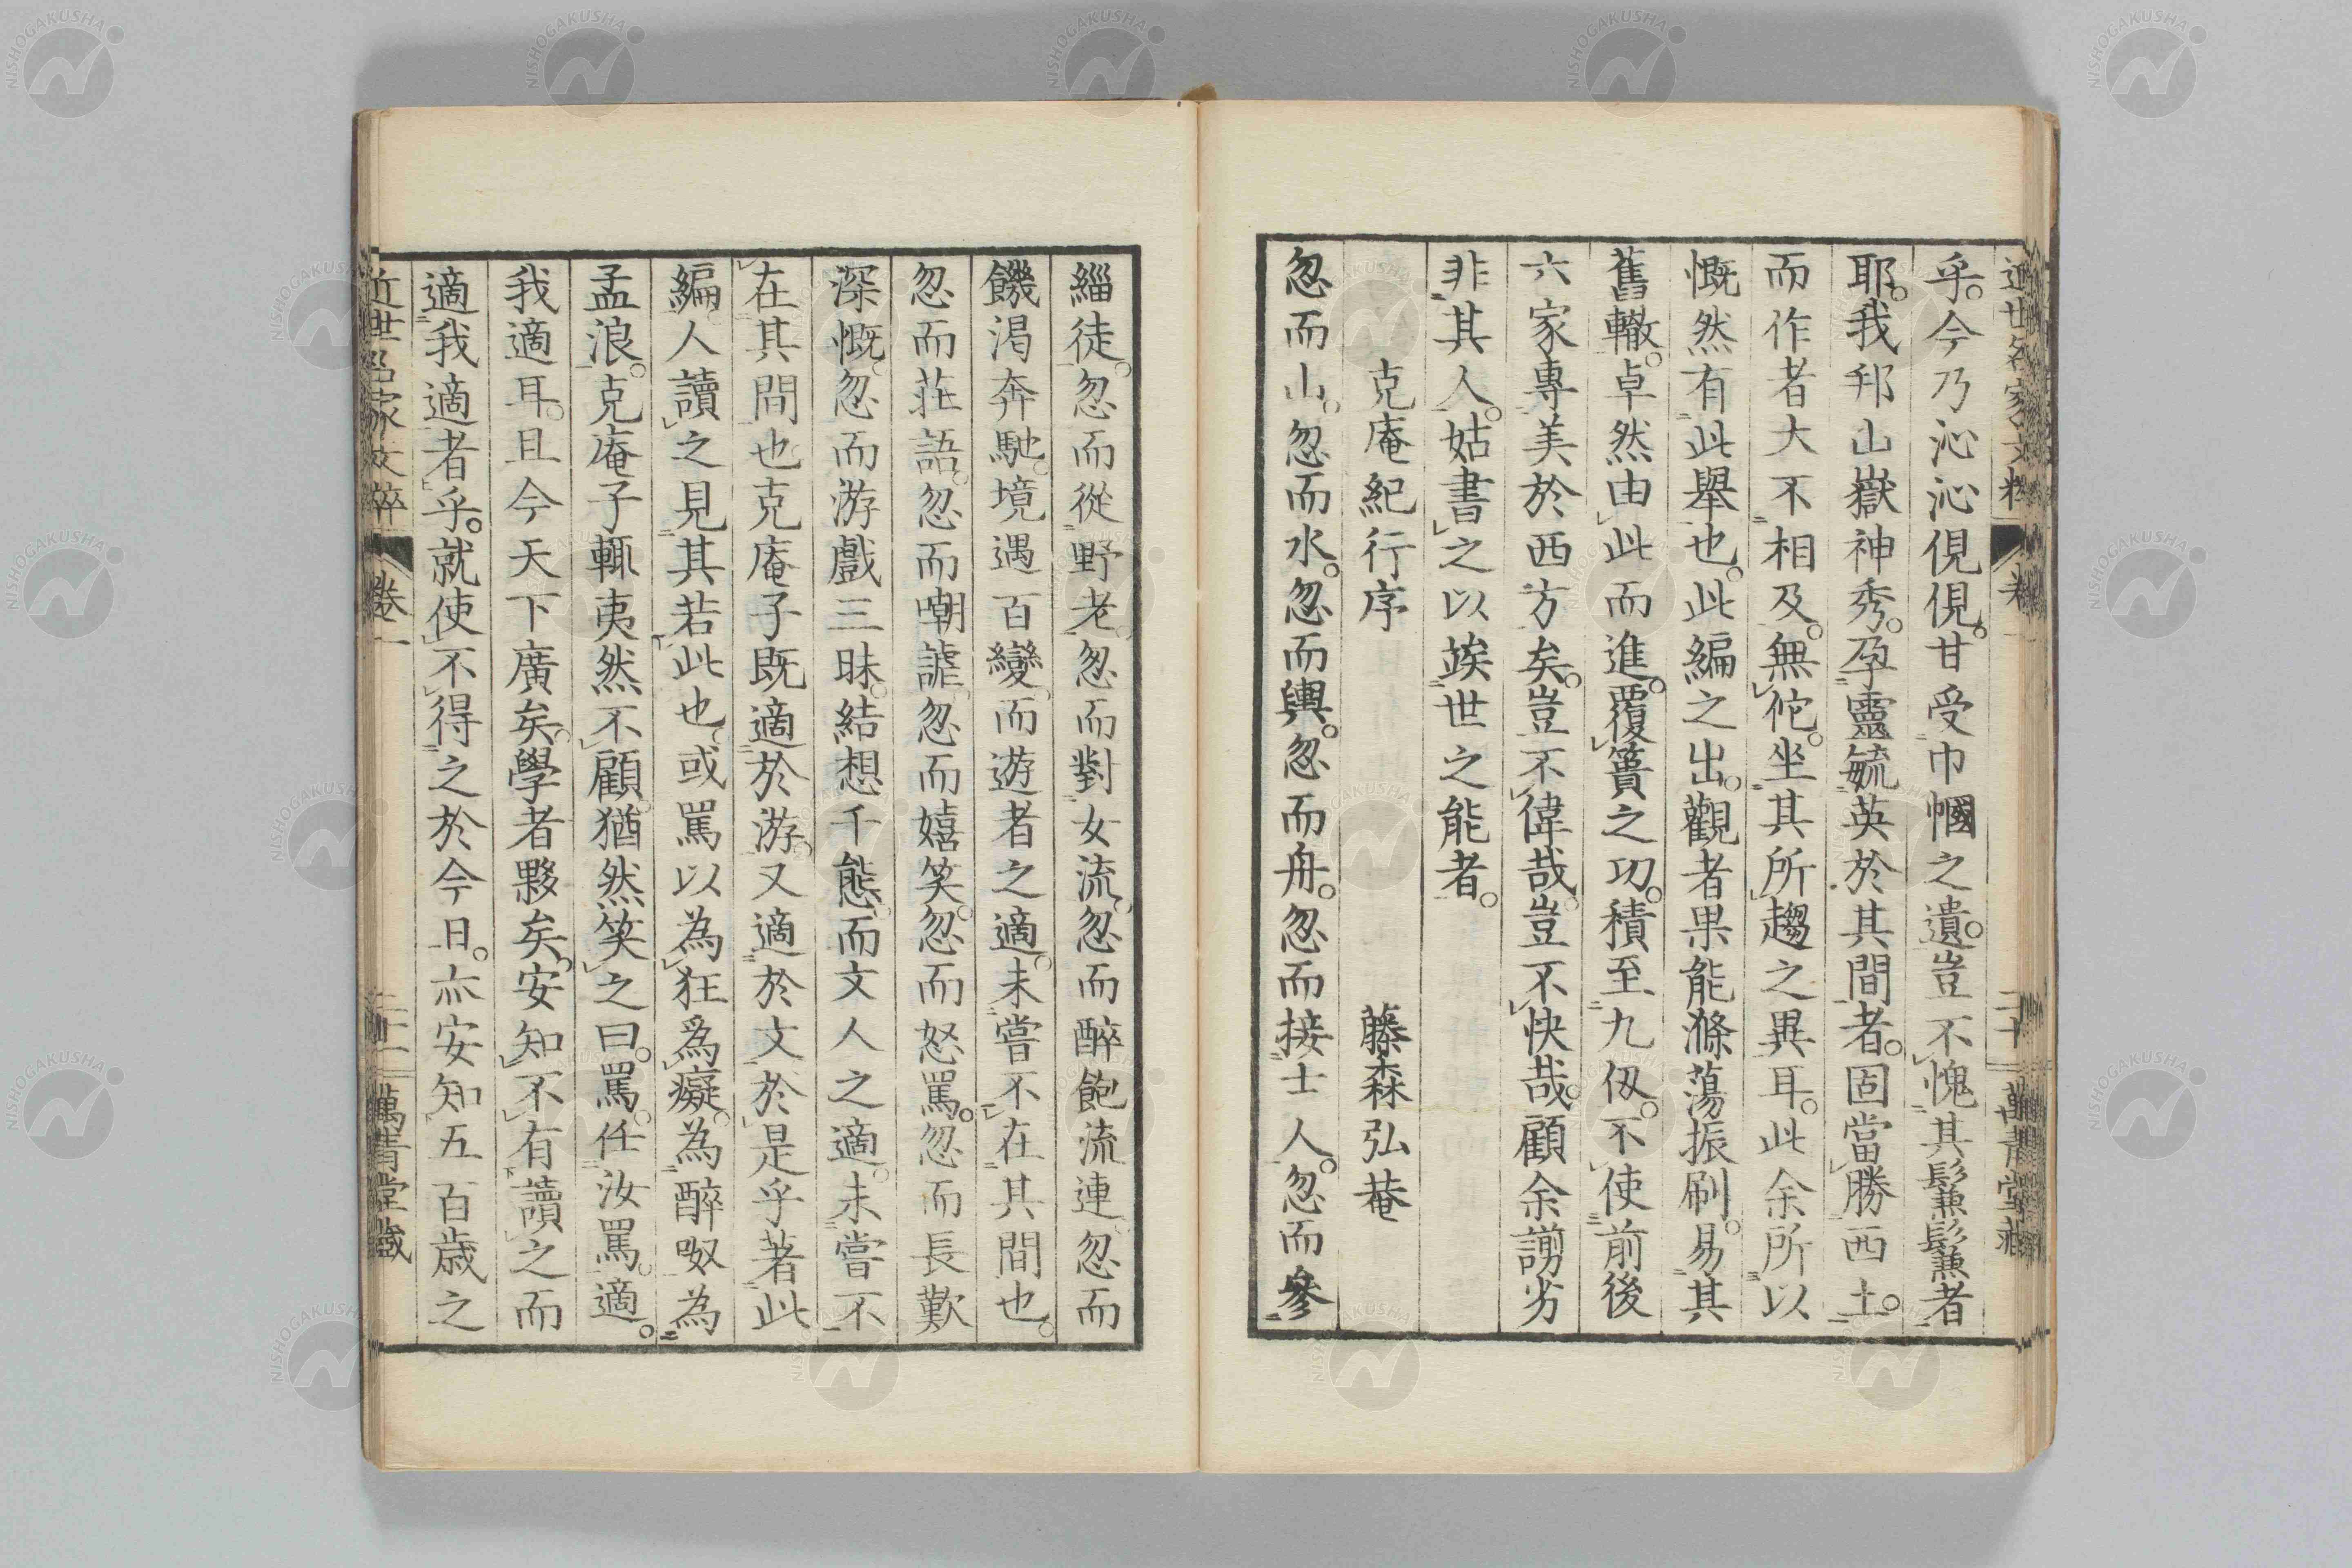 乎。今乃沁沁俔俔。甘受巾幗之遺。豈不愧其鬑鬑者
耶。我邦山嶽神秀。孕靈毓英於其間者。固當勝西土。
而作者大不相及。無佗。坐其所趨之異耳。此余所以
慨然有此舉也。此編之出。觀者果能滌蕩振刷。易其
舊轍。卓然由此而進。覆簣之功。積至九仭。不使前後
六家專美於西方矣。豈不偉哉。豈不快哉。顧余謭劣
非其人。姑書之以竢世之能者。
克庵紀行序 藤森弘菴
忽而山。忽而水。忽而輿。忽而舟。忽而接士人。忽而參
緇徒。忽而從野老。忽而對女流。忽而醉飽流連。忽而
饑渇奔馳。境遇百變。而遊者之適。未嘗不在其間也。
忽而莊語。忽而嘲謔。忽而嬉笑。忽而怒罵。忽而長歎
深慨。忽而游戲三昧。結想千態。而文人之適。未嘗不
在其間也。克庵子既適於游。又適於文。於是乎著此
編。人讀之見其若此也。或罵以為狂為癡。為醉呶為
孟浪。克庵子輒夷然不顧。猶然笑之曰。罵任汝罵。適
我適耳。且今天下廣矣。學者夥矣。安知不有讀之而
適我適者乎。就使不得之於今日。亦安知五百歳之
近世名家文粹 卷一 萬青堂藏
NISHOGAKUSHA